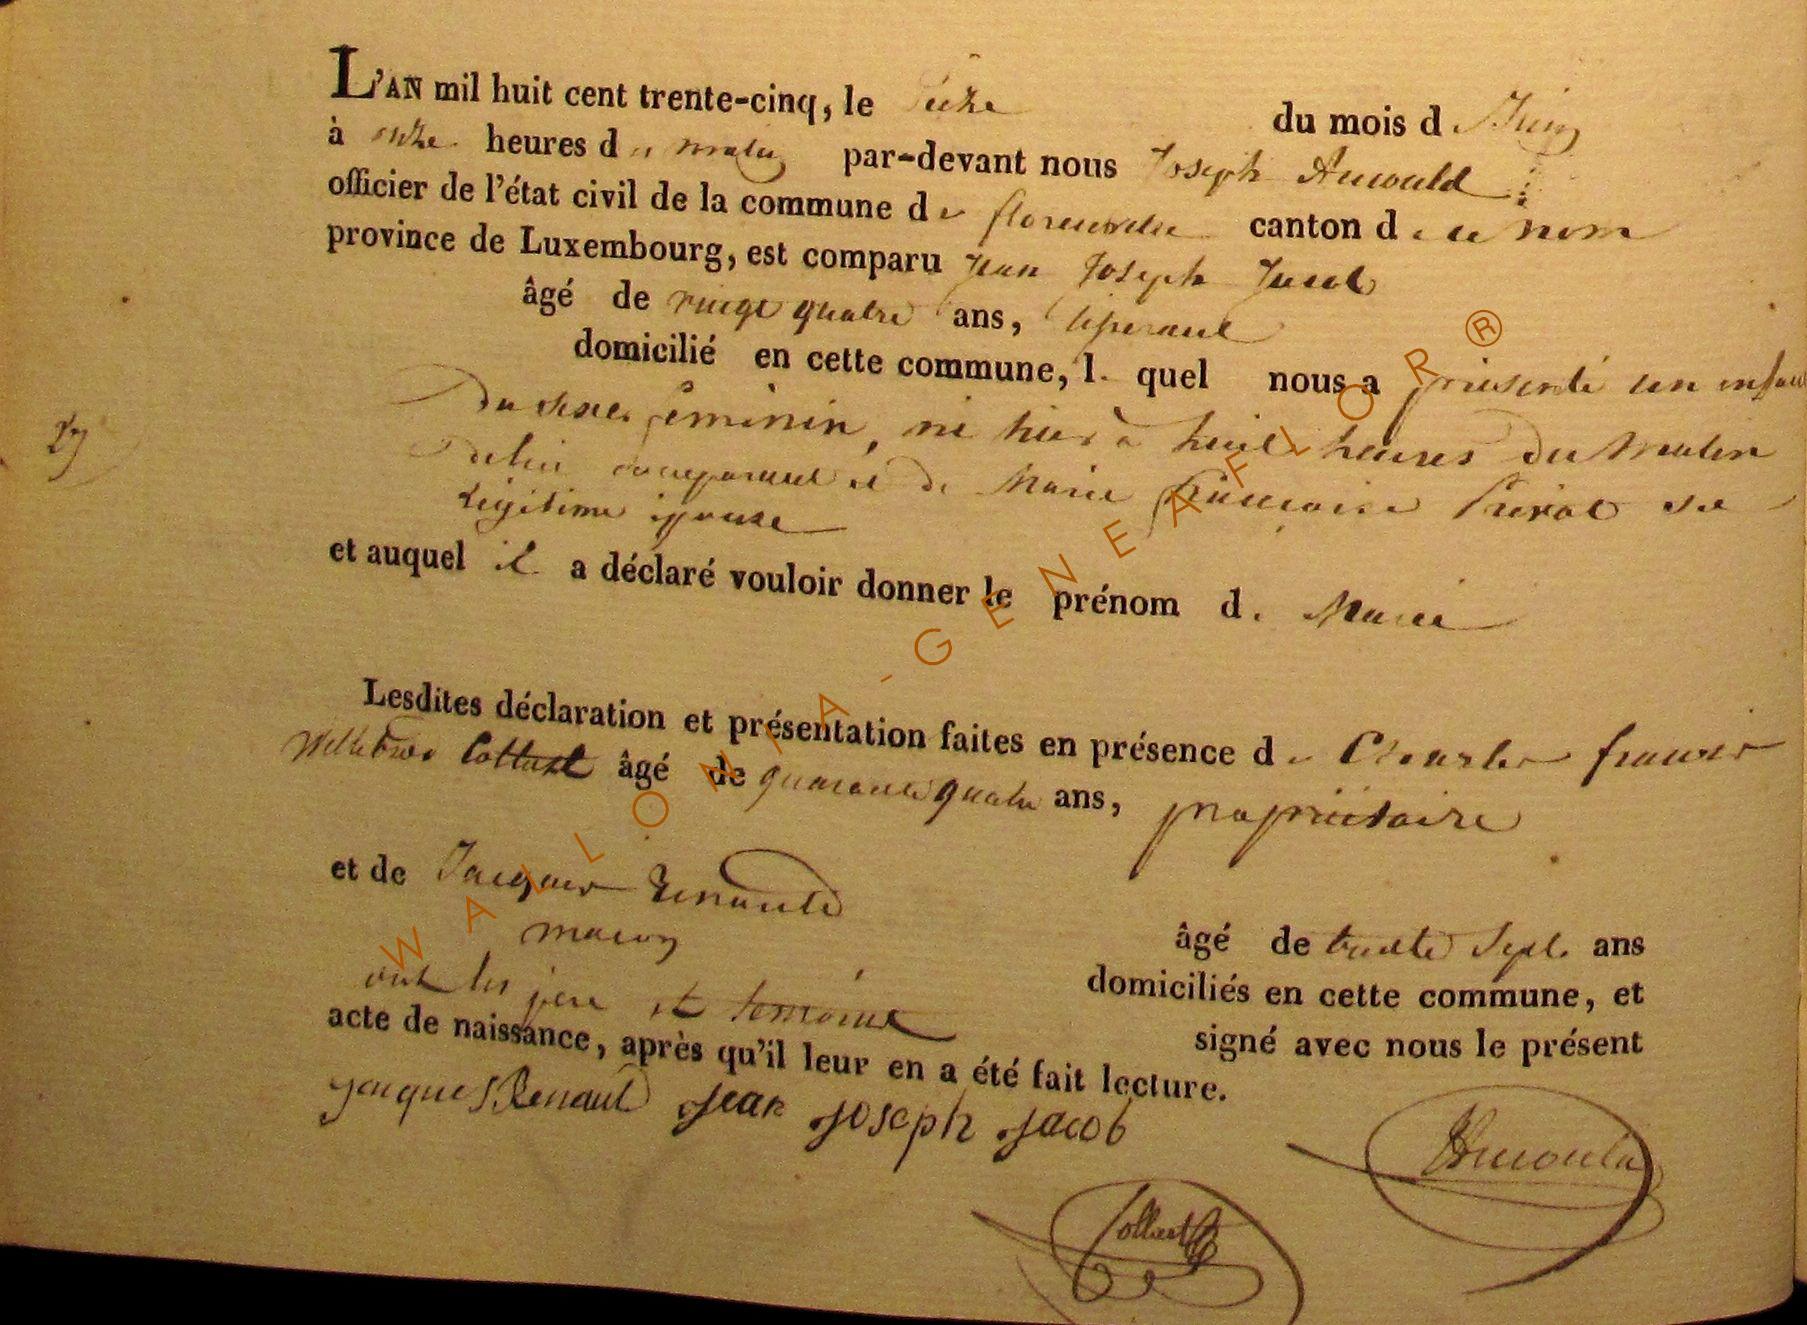 L'AN mil huit cent trente-cinq, le seize du mois d Juin
à onze heures du matin par-devant nous Joseph Arnould
officier de l'état civil de la commune de florenville canton de ce nom
province de Luxembourg, est comparu Jean Joseph Jacob
âgé de vingt quatre ans,
domicilié en cette commune, l quel nous a présenté un enfant
Du sexe feminin, né hier à huit heures du matin
27
de lui comparant et de Marie françoise sa
Légitime épouse
et auquel il a déclaré vouloir donner le prénom d. Marie
Lesdites déclaration et présentation faites en présence de Charles françois
Willebror Collard âgé de quarante quatre ans, propriétaire
et de Jacques Renauld
macon âgé de trente Sept ans
ont les père et temoins domiciliés en cette commune, et
signé avec nous le présent
acte de naissance, après qu'il leur en a été fait lecture.
Jacques Renauld Jean Joseph Jacob
Arnould
Collard
WALLONIA-GENEAFLOR®